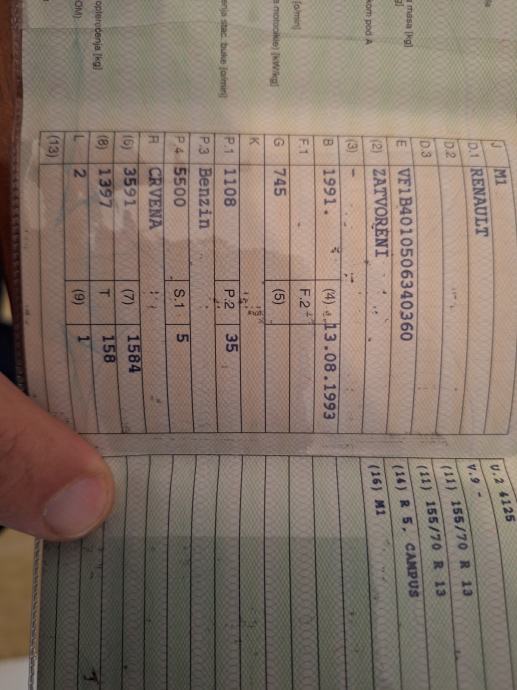 masa [kg]
kom pod A
[o/min]
a motocikle) [kW/kg]
stac. buke [o/min]
opterećenja [kg]
J M1
D.1 RENAULT
D.2
D.3
E VF1B4010506340360
(2) ZATVORENI
(3) -
B 1991. (4) 13.08.1993
F.1 F.2
G 745 (5)
K
P.1 1108 P.2 35
P.3 Benzin
P.4 5500 S.1 5
R CRVENA
(6) 3591 (7) 1584
(8) 1397 T 158
L 2 (9) 1
(13)
U.2 4125
V.9 -
(11) 155/70 R 13
(11) 155/70 R 13
(14) R 5, CAMPUS
(16) M1